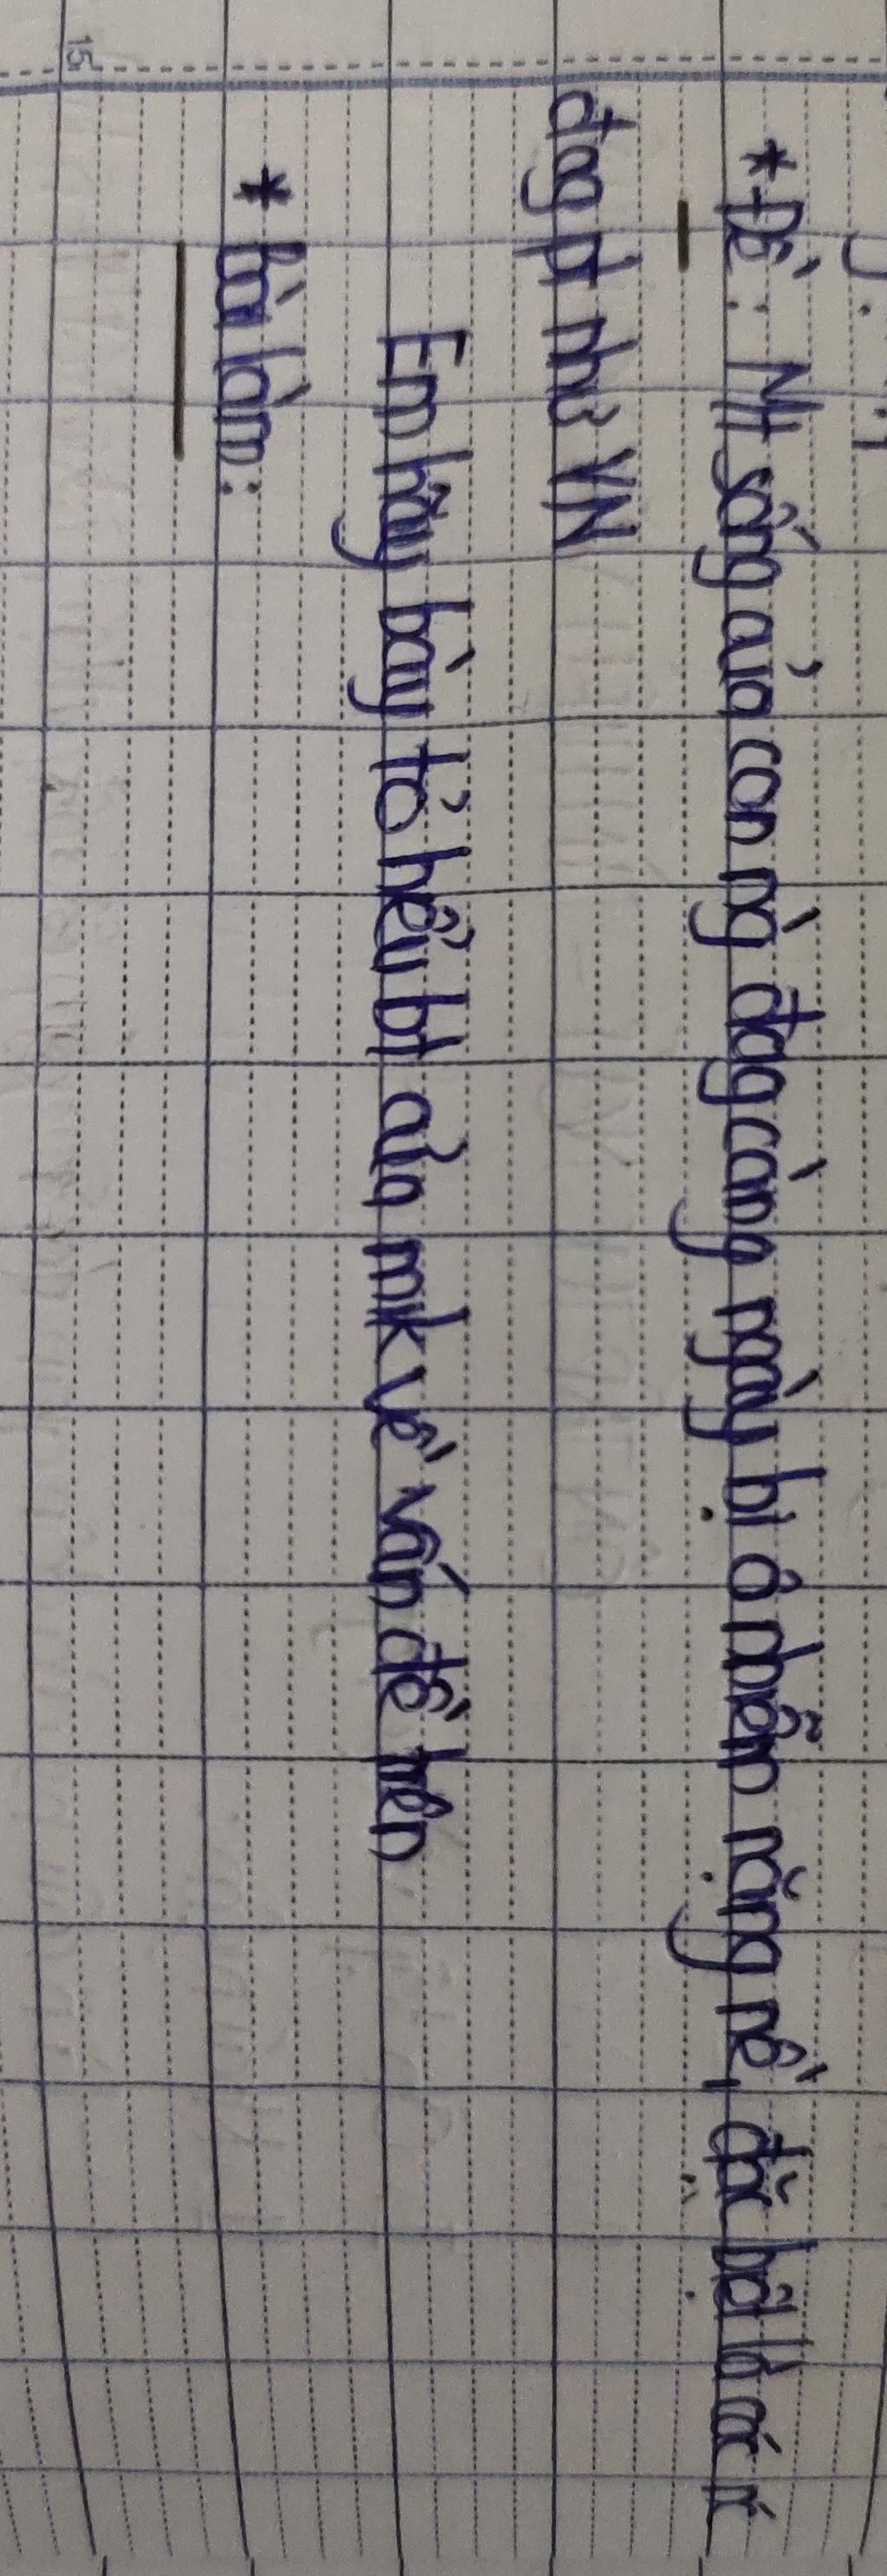 * Đề: Mt sống của con ng` đag càng ngày bị ô nhiễm nặng nề, đặc biệt là các n'
đag pt như VN
Em hãy bày tỏ hiểu bt của mk về vấn đề trên
* Bài làm:
15